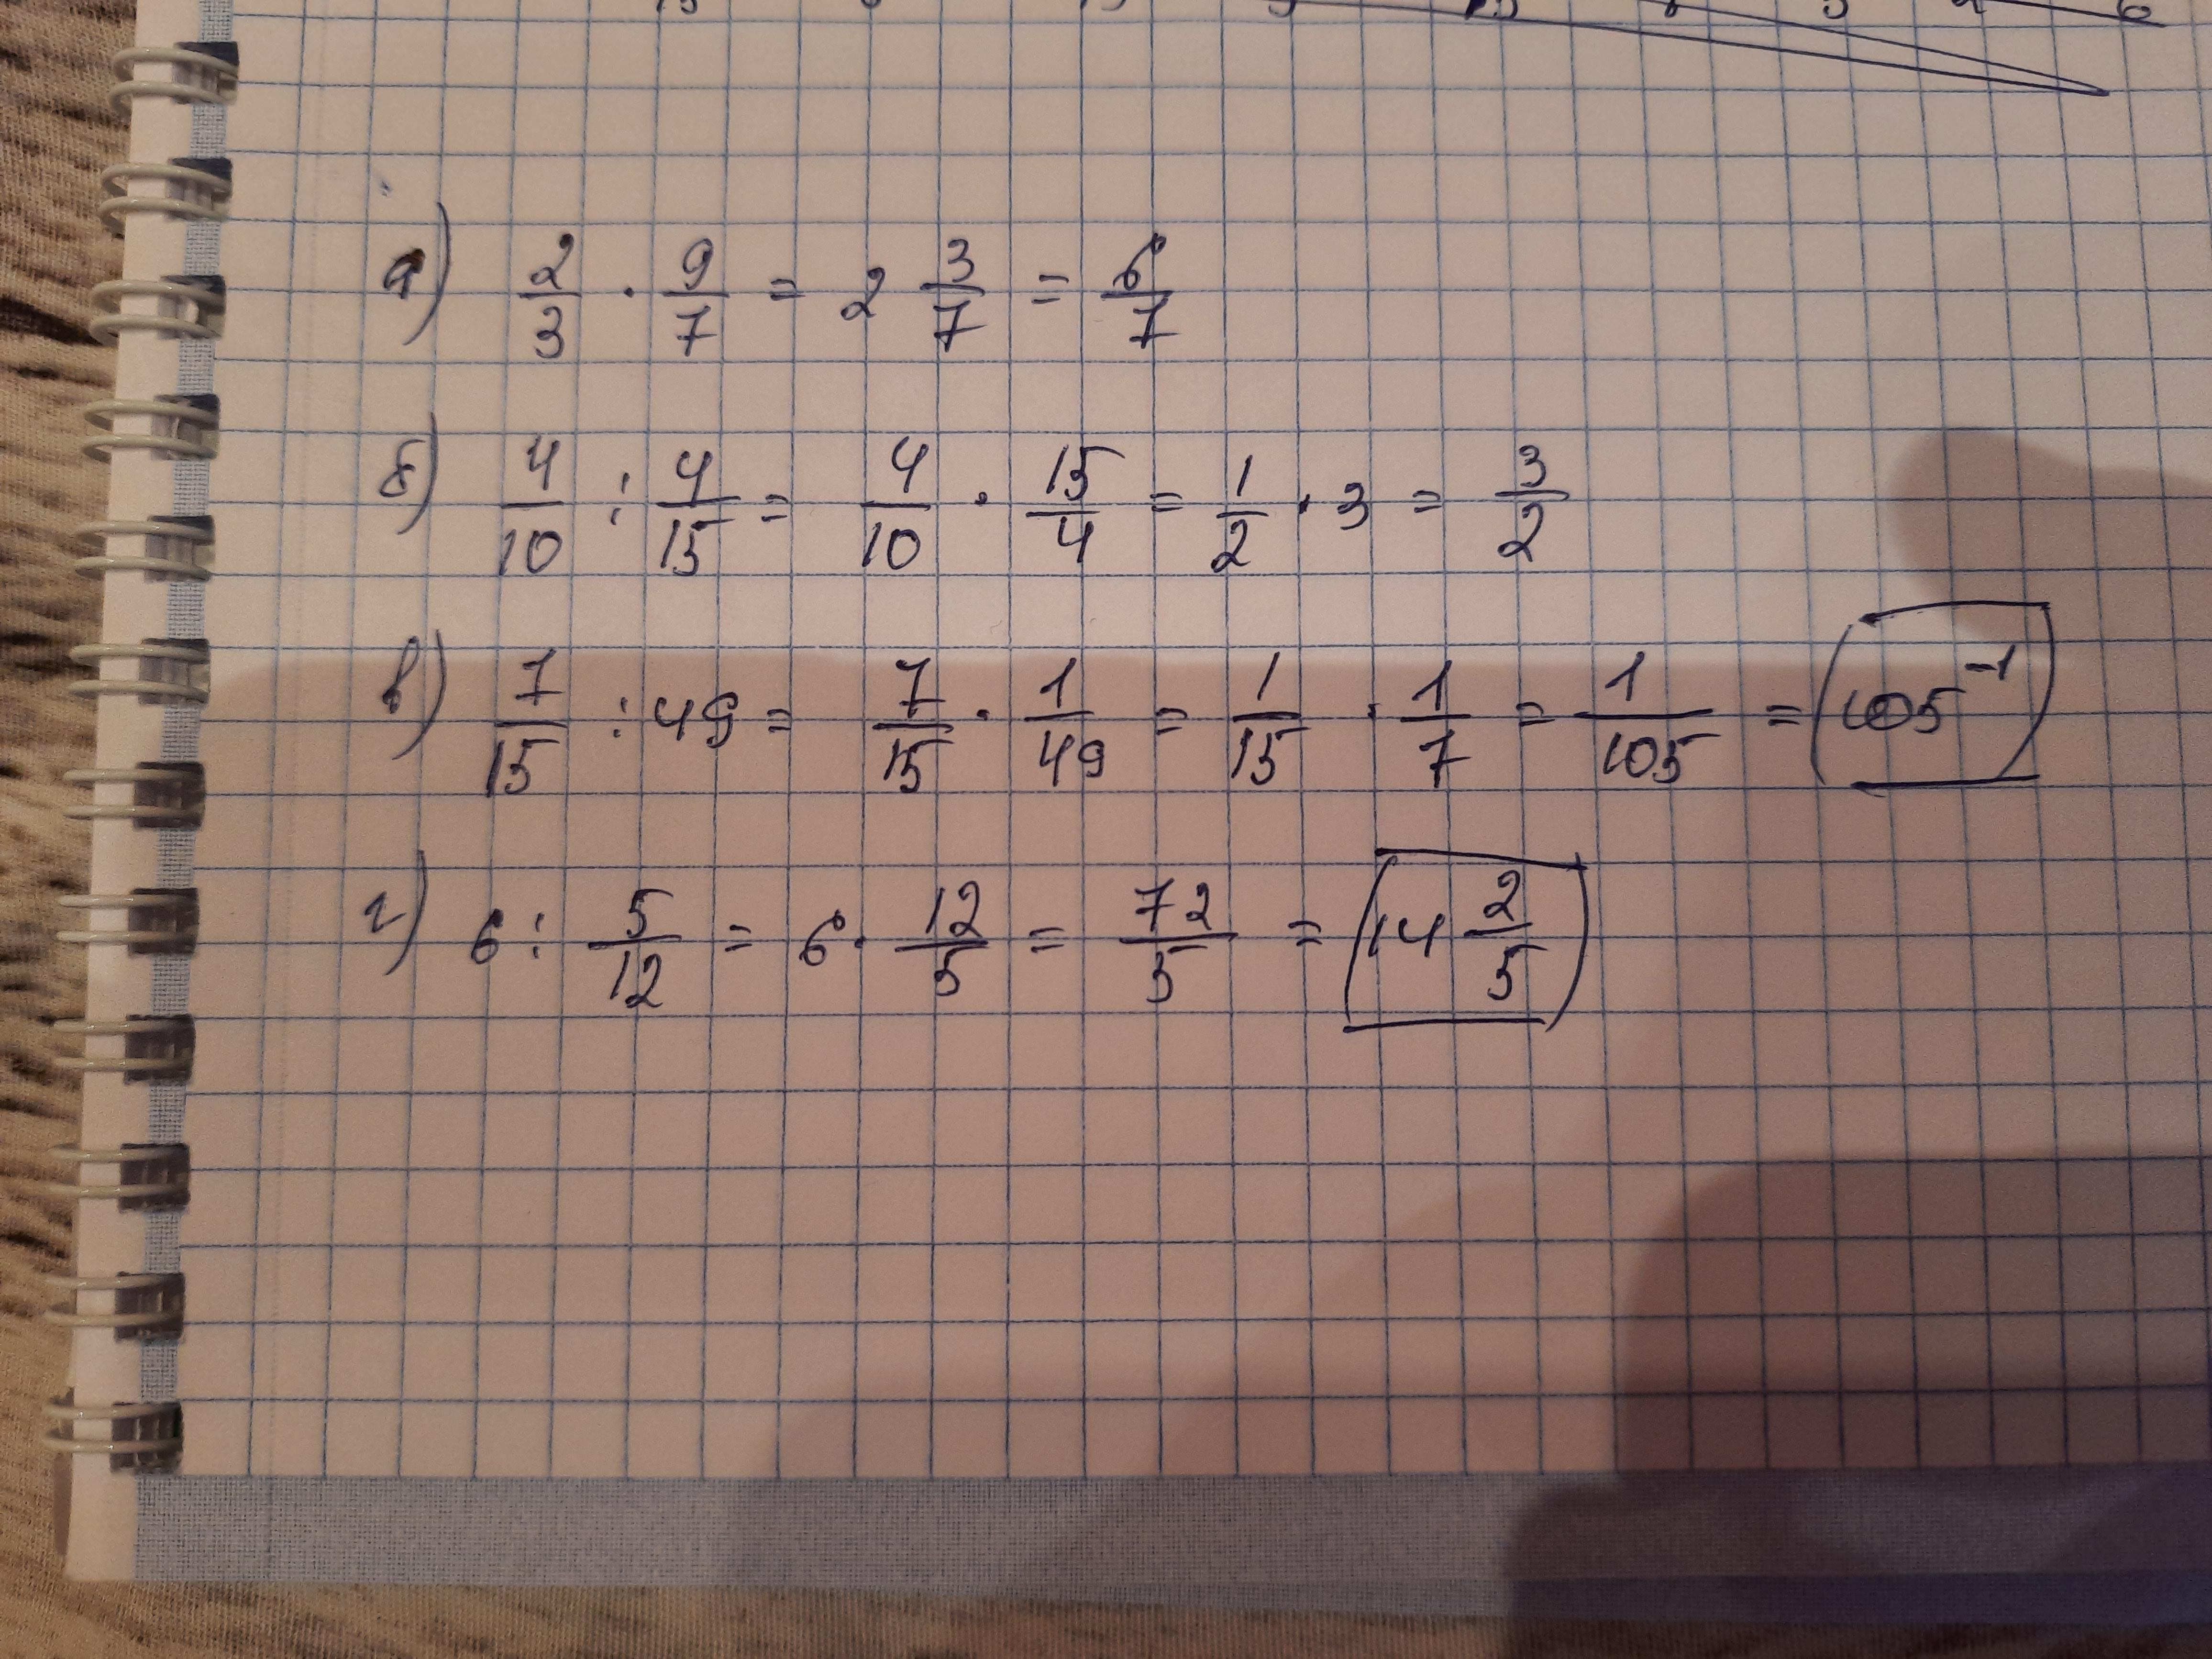 а) 2/3 · 9/7 = 2 3/7 = 6/7
б) 4/10 : 4/15 = 4/10 · 15/4 = 1/2 · 3 = 3/2
в) 7/15 : 49 = 7/15 · 1/49 = 1/15 · 1/7 = 1/105 = 105⁻¹
г) 6 : 5/12 = 6 · 12/5 = 72/5 = 14 2/5